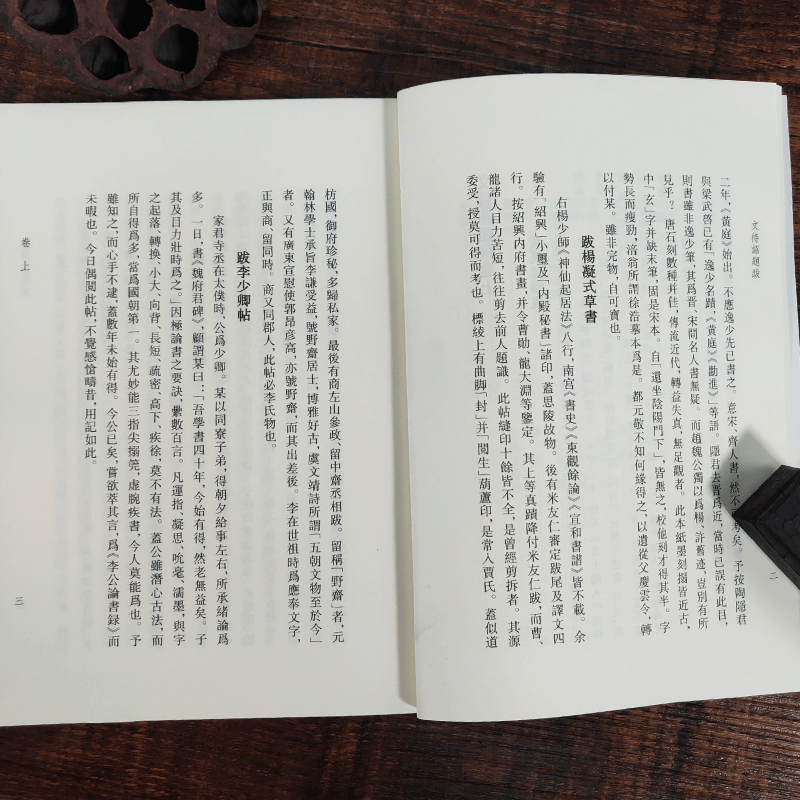 文待詔題跋
二
二年，《黃庭》始出。不應逸少先已書之。意宋、齊人書，然不
矣。予按陶隱君
與梁武啓已有「逸少名蹟，《黃庭》《勸進》」等語。隱君去晉爲近，當時已誤有此目，
則書雖非逸少筆，其爲晉、宋間名人書無疑。而趙魏公獨以爲楊、許舊迹，豈別有所
見乎？唐石刻數種并佳，傳流近代，轉益失真，無足觀者。此本紙墨刻搨皆近古，
中「玄」字并缺末筆，固是宋本。自「還坐陰陽門下」，皆無之，校他刻才得其半。字
勢長而瘦勁，涪翁所謂徐浩摹本爲是。都元敬不知何緣得之，以遺從父慶雲令，轉
以付某。雖非完物，自可寶也。
跋楊凝式草書
右楊少師《神仙起居法》八行，南宮《書史》《東觀餘論》《宣和書譜》皆不載。余
驗有「紹興」小璽及「內殿秘書」諸印，蓋思陵故物。後有米友仁審定跋尾及譯文四
行。按紹興內府書畫，并令曹勛、龍大淵等鑒定。其上等真蹟降付米友仁跋，而曹、
龍諸人目力苦短，往往剪去前人題識。此帖縫印十餘皆不全，是曾經剪拆者。其源
委受，授莫可得而考也。標綾上有曲脚「封」并「閱生」葫蘆印，是常入賈氏。蓋似道
枋國，御府珍秘，多歸私家。最後有商左山參政、留中齋丞相跋。留稱「野齋」者，元
翰林學士承旨李謙受益，號野齋居士，博雅好古，虞文靖詩所謂「五朝文物至於今」
者。又有廣東宣慰使郭昂彥高，亦號野齋，而其出差後。李在世祖時爲應奉文字，
正與商、留同時。商又同郡人，此帖必李氏物也。
跋李少卿帖
家君寺丞在太僕時，公爲少卿。某以同寮子弟，得朝夕給事左右，所承緒論爲
多。一日，書《魏府君碑》，顧謂某曰：「吾學書四十年，今始有得，然老無益矣。子
其及目力壯時爲之。」因極論書之要訣，纍數百言。凡運指、凝思、吮毫、濡墨，與字
之起落、轉換、小大、向背、長短、疏密、高下、疾徐，莫不有法。蓋公雖潛心古法，而
所自得爲多，當爲國朝第一。其尤妙能三指尖搦筦，虛腕疾書，今人莫能爲也。予
雖知之，而心手不逮，蓋數年未始有得。今公已矣，嘗欲萃其言，爲《李公論書錄》而
未暇也。今日偶閱此帖，不覺感愴疇昔，用記如此。
卷上
三